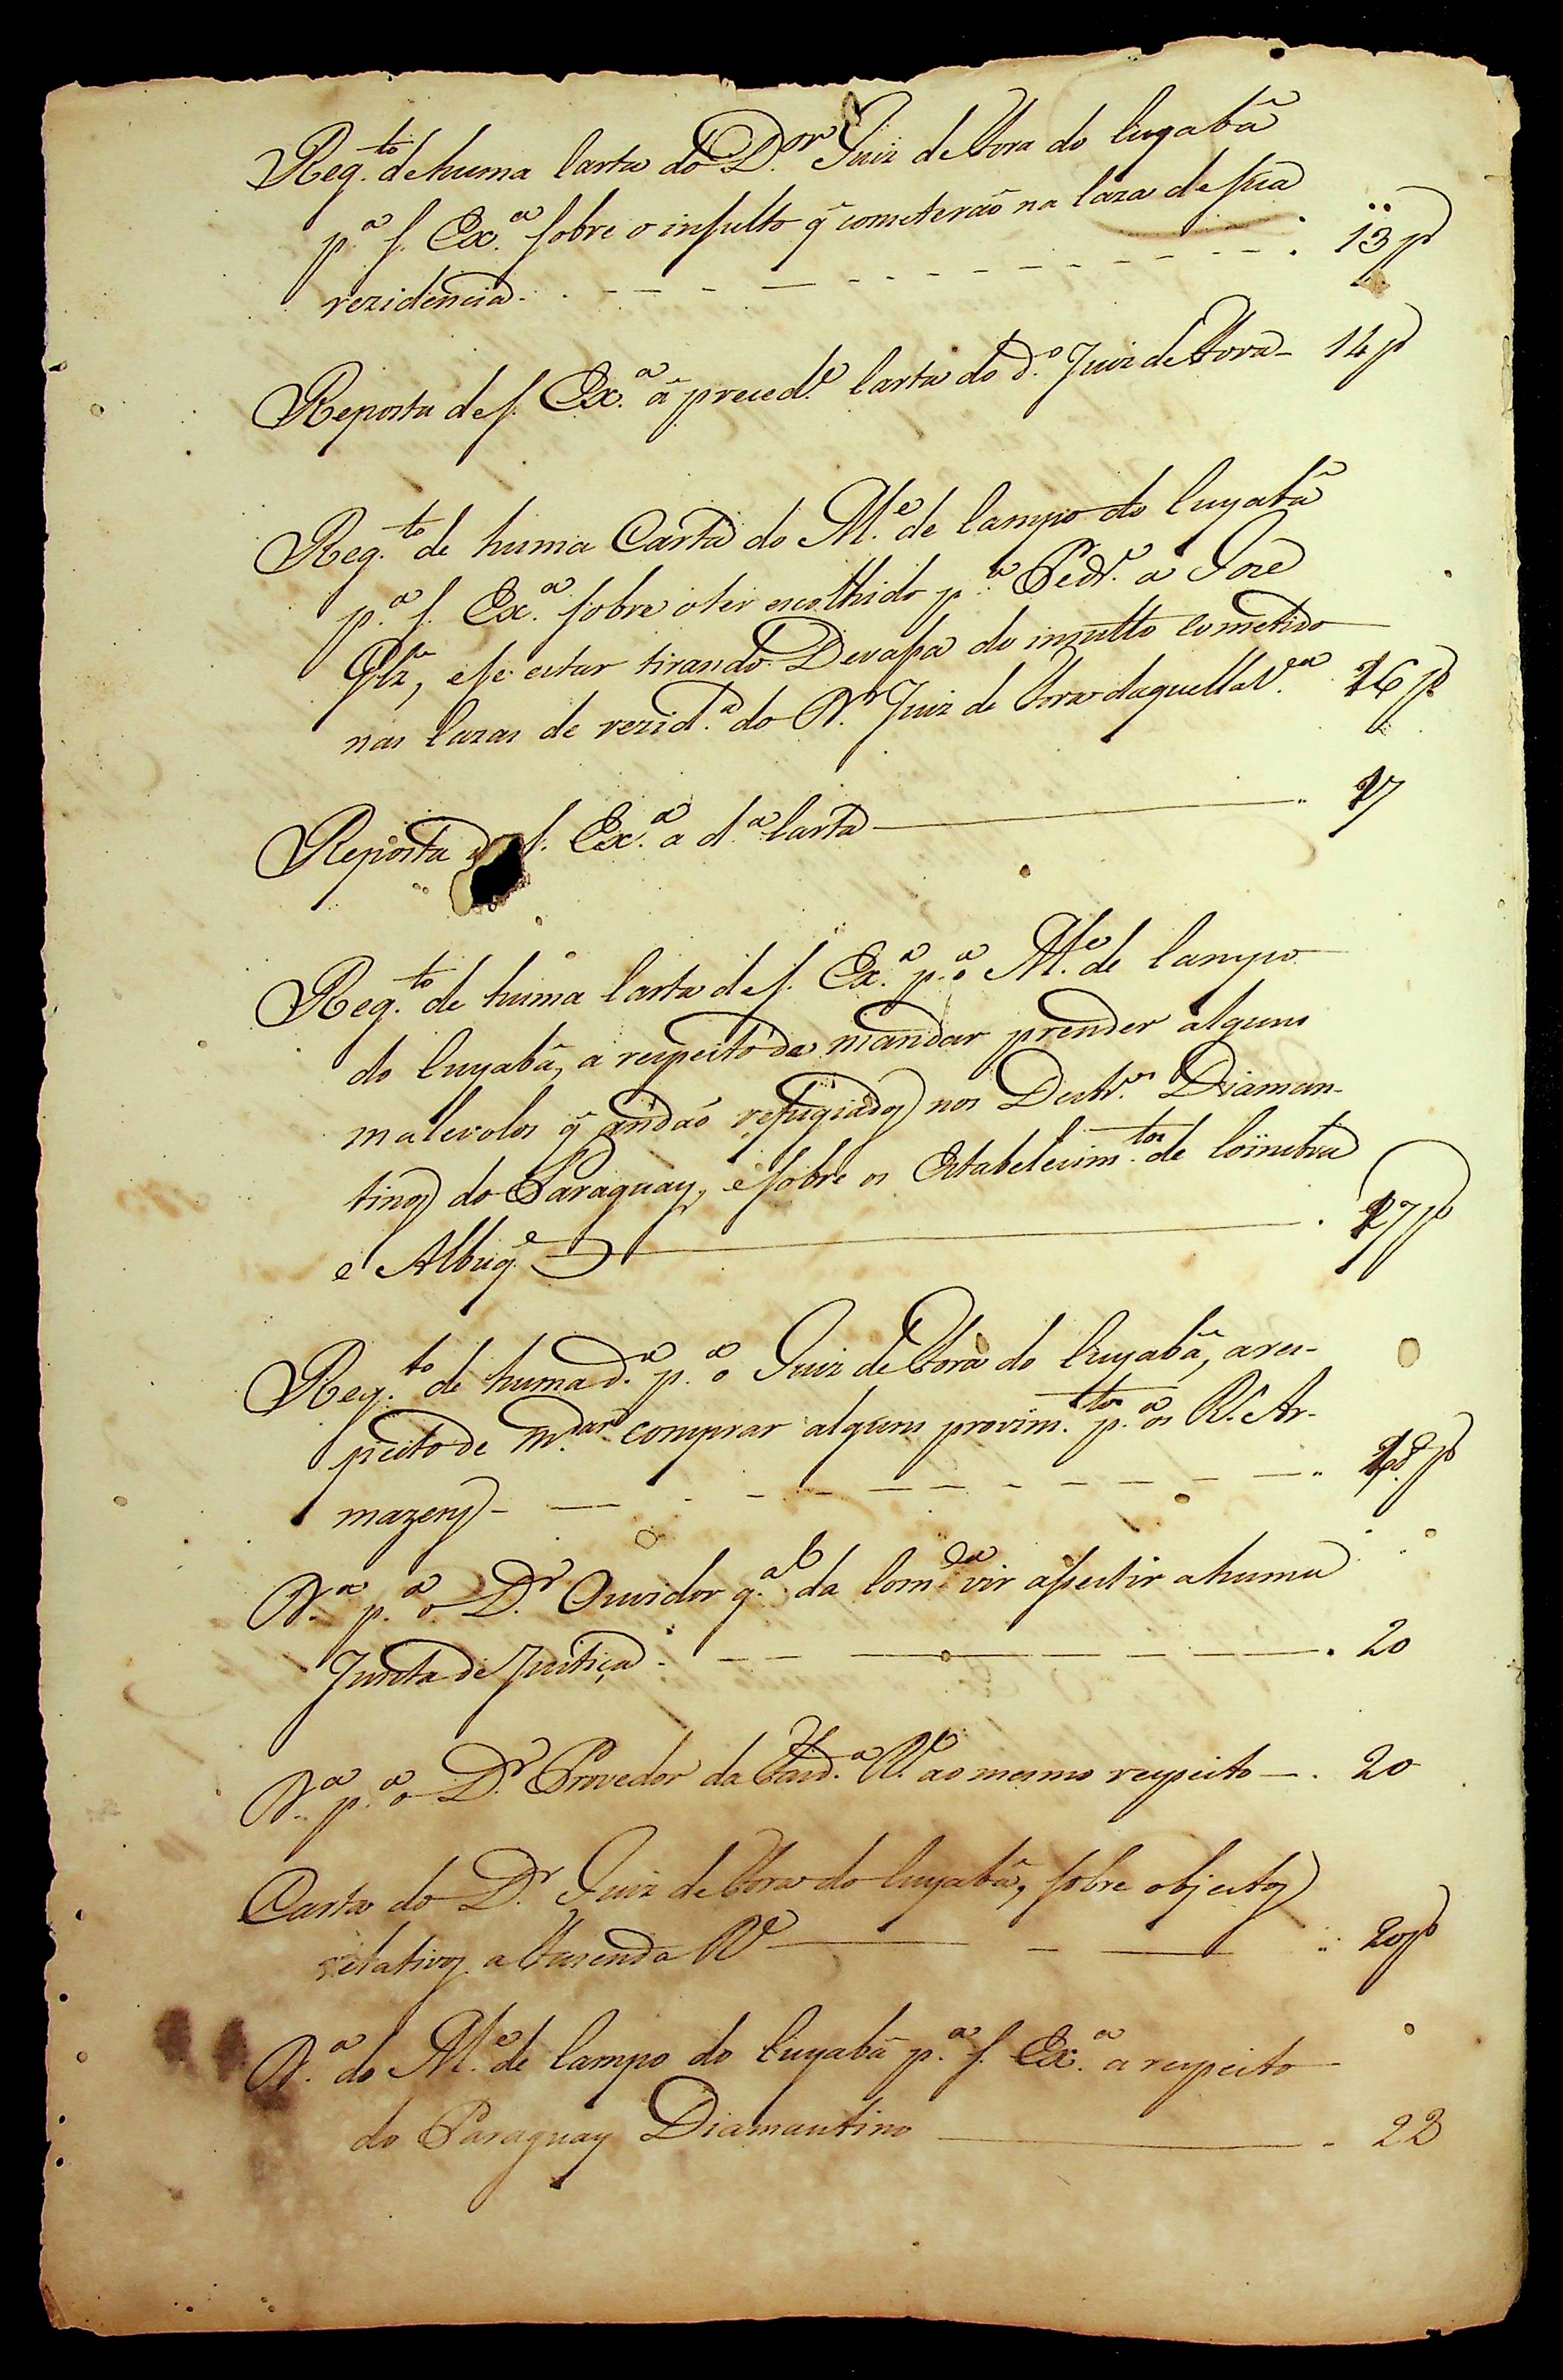 Reg.to de huma Carta do D.or Juiz de Fora do Cuyabá
p.a S. Ex.a sobre o insulto q̃ cometerão na Caza de sua
rezidencia. 13
Reposta de S. Ex.a á preced.e Carta do d.o Juiz de Fora 14
Reg.to de huma Carta do M.e de Campo do Cuyabá
p.a S. Ex.a sobre o ter escolhido p.a a Joze
Glz, e se estar tirando Devassa do insulto cometido
nas Cazas de rezid.a do D.r Juiz de Fora daquella V.a 16
Reposta de S. Ex.a a d.a Carta 17
Reg.to de huma Carta de S. Ex.a p.a o M.e de Campo
do Cuyabá, a respeito de mandar prender alguns
malevolos q̃ andão refugiados nos Destr.os Diaman-
tinos do Paraguay, e sobre os Estabelecim.tos de Coimbra
e Albuq.e 17
Reg.to de huma d.a p.a o Juiz de Fora do Cuyabá, a res-
peito de m.dar comprar alguns provim.tos p.a os R. Ar-
mazens
D.a p.a o D.r Ouvidor g.al da Com.ca vir assestir a huma
Junta de Justiça 20
D.a p.a o D.r Provedor da Faz.da R. ao mesmo respeito 20
Carta do D.r Juiz de Fora do Cuyabá, sobre objectos
relativos a Fazenda R. 20
D.a do M.e de Campo do Cuyabá p.a S. Ex.a a respeito
do Paraguay Diamantino 22